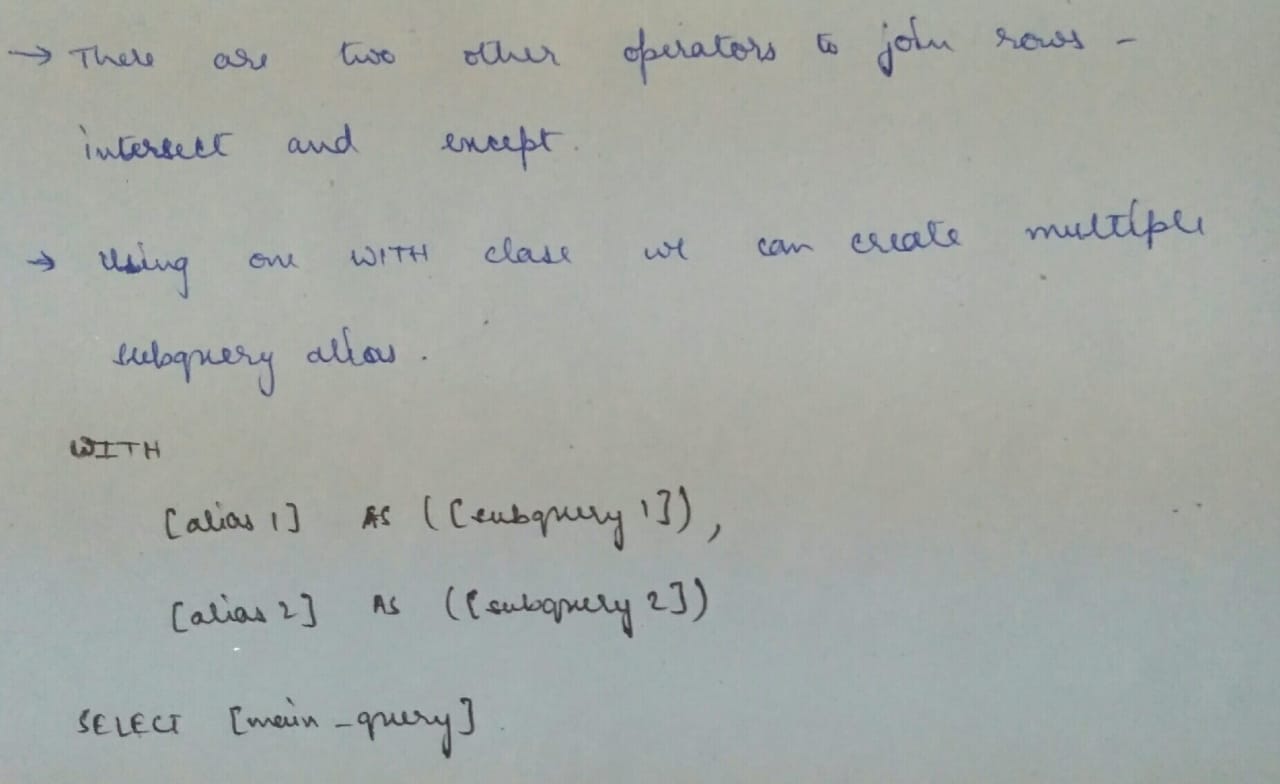 → There are two other operators to join rows -
intersect and except.
→ Using one WITH clase we can create multiple
subquery allias.
WITH
[alias 1] AS ([subquery 1]),
[alias 2] AS ([subquery 2])
SELECT [main_query]